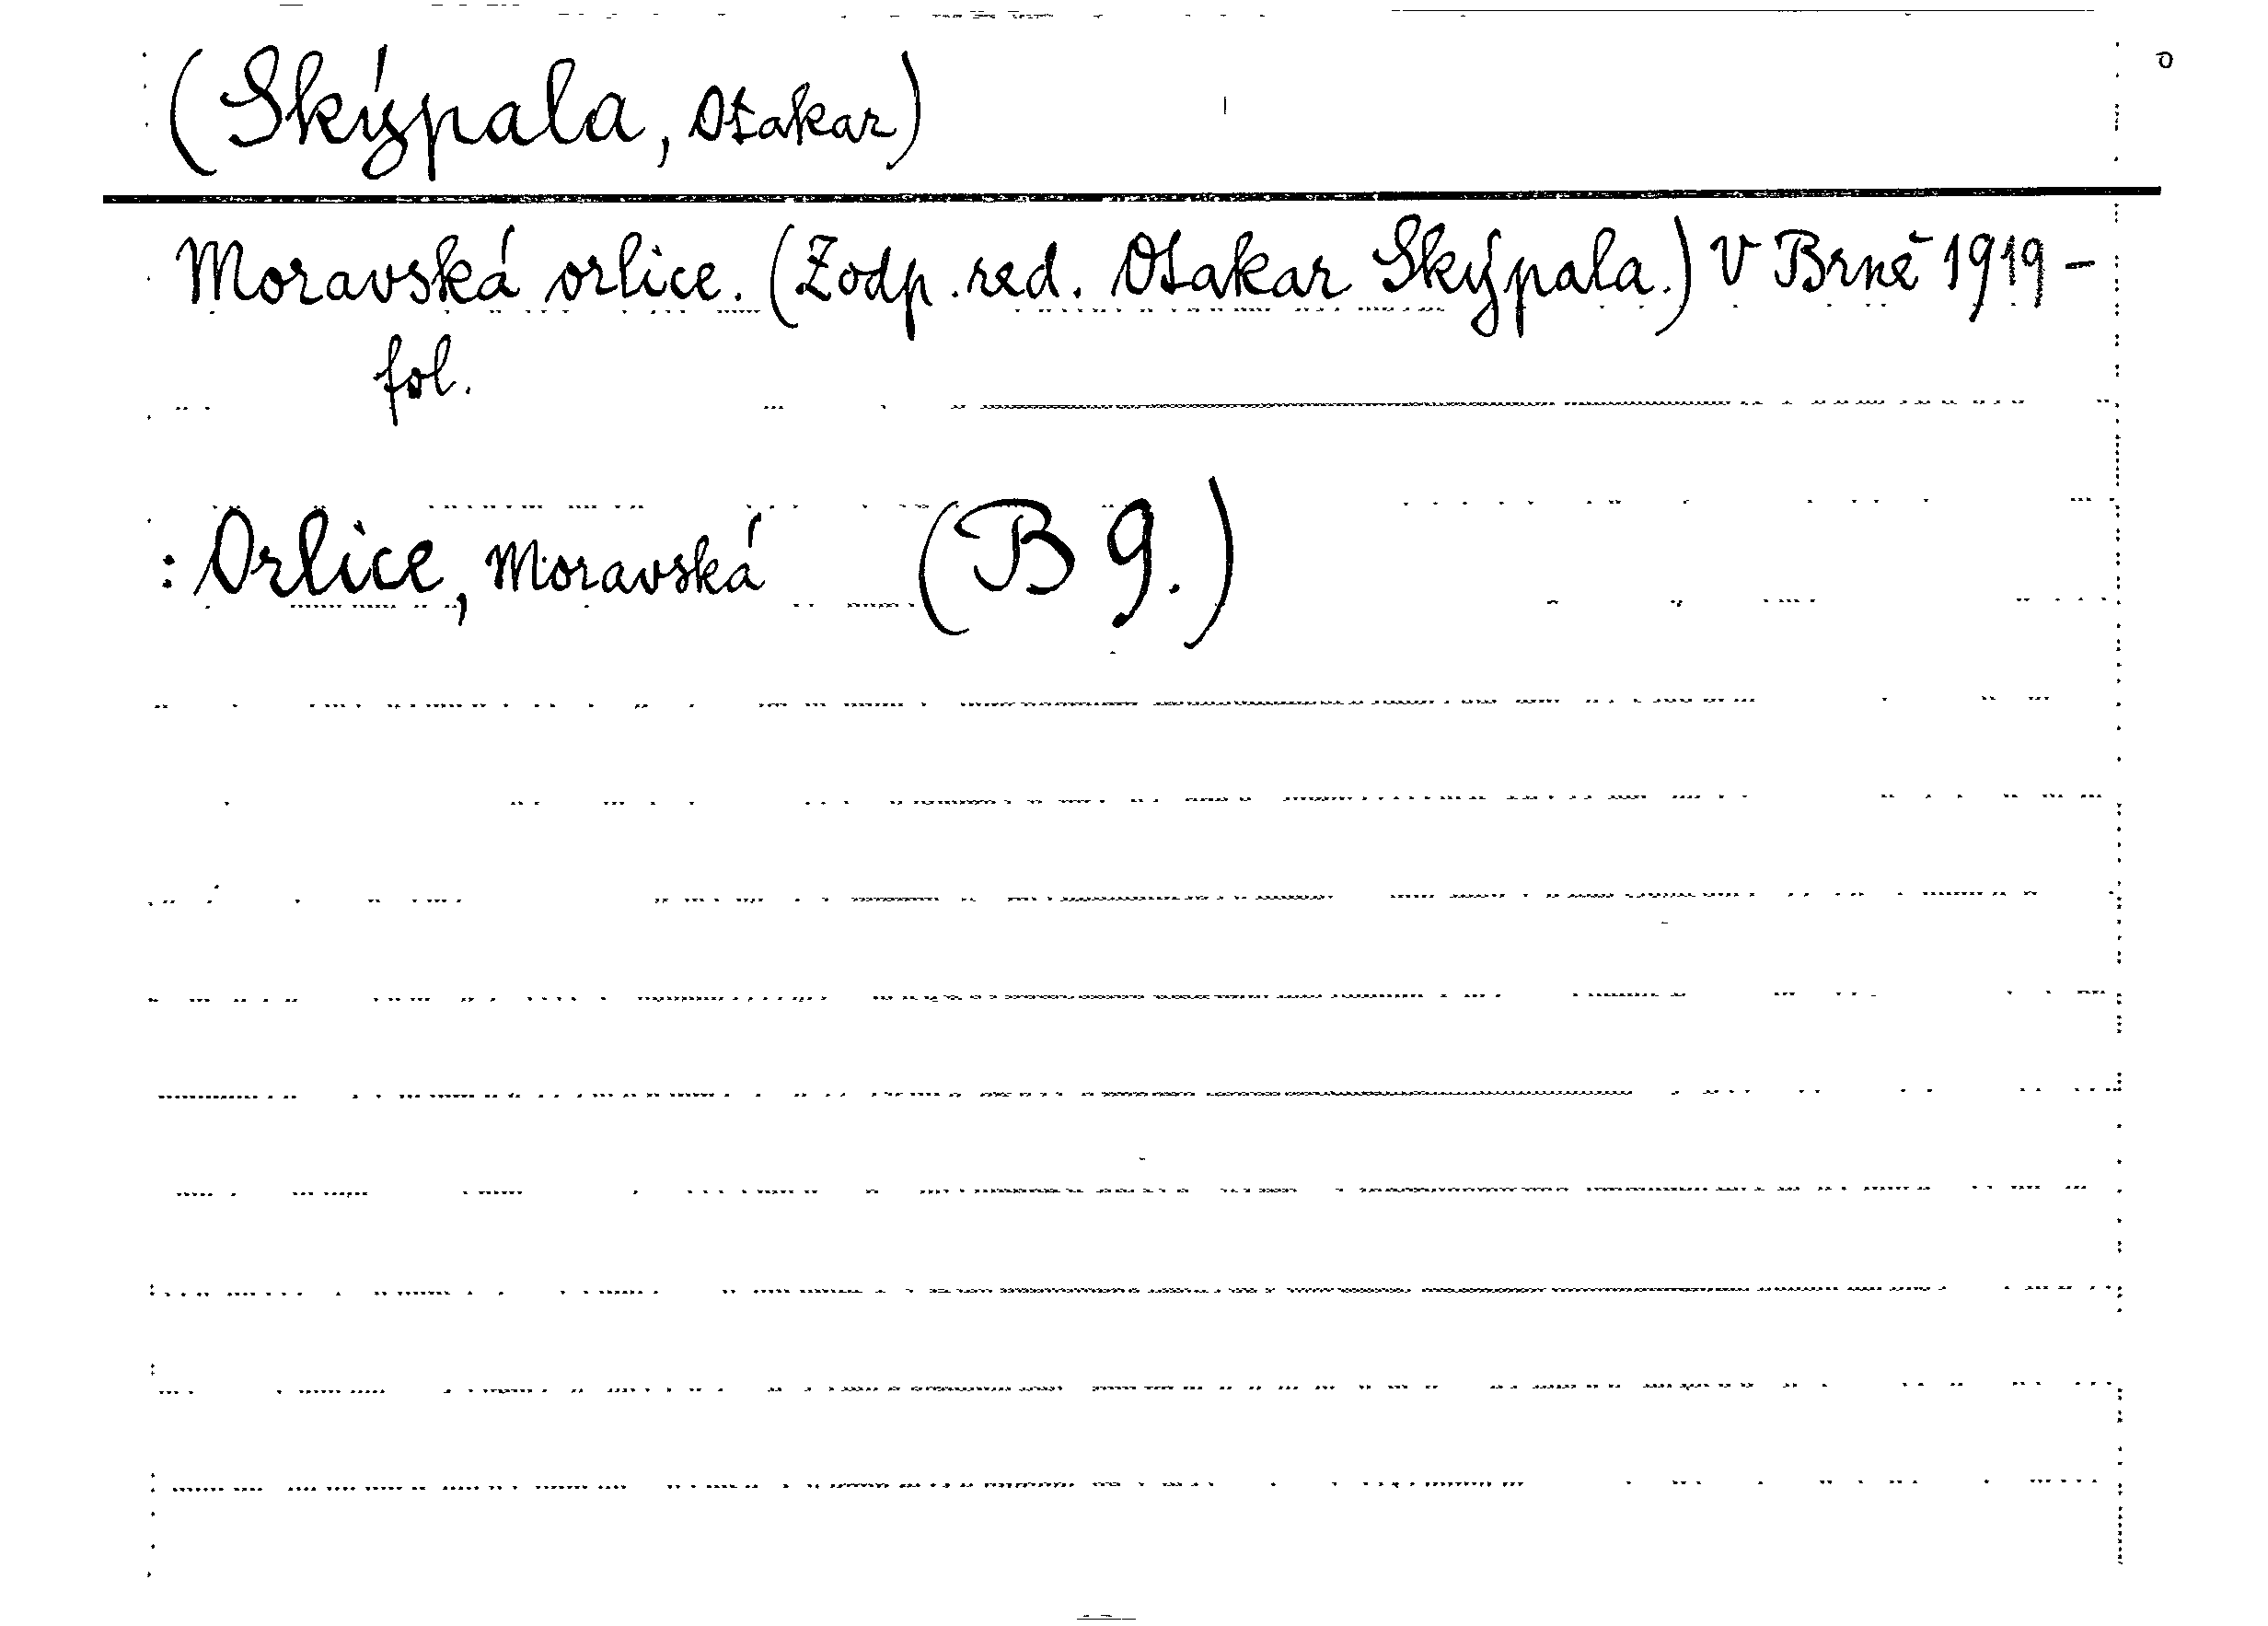 (Skýpala, Otakar)
Moravská orlice. (Zodp. red. Otakar Skýpala.) V Brně 1919 -
fol.
: Orlice, Moravská (B 9.)